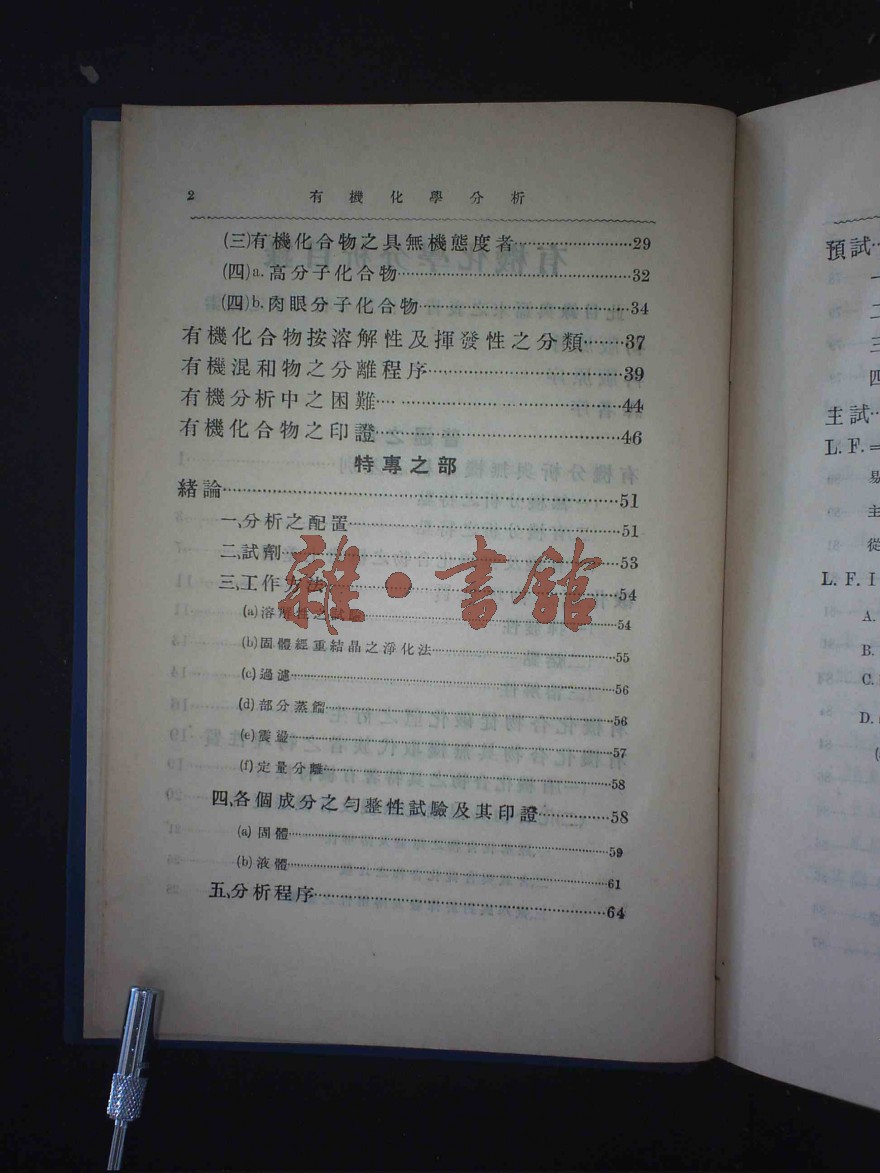 2 有機化學分析
(三)有機化合物之具無機態度者……29
(四)a.高分子化合物……32
(四)b.肉眼分子化合物……34
有機化合物按溶解性及揮發性之分類……37
有機混和物之分離程序……39
有機分析中之困難……44
有機化合物之印證……46
特專之部
緒論……51
一、分析之配置……51
二、試劑……53
三、工作方法……54
(a)溶解性之試驗……54
(b)固體經重結晶之淨化法……55
(c)過濾……56
(d)部分蒸餾……56
(e)震盪……57
(f)定量分離……58
四、各個成分之勻整性試驗及其印證……58
(a)固體……59
(b)液體……61
五、分析程序……64
雜·書館
預試
一
二
三
四
主試
L.F.=
易
主
從
L.F.I
A.
B.
C.
D.